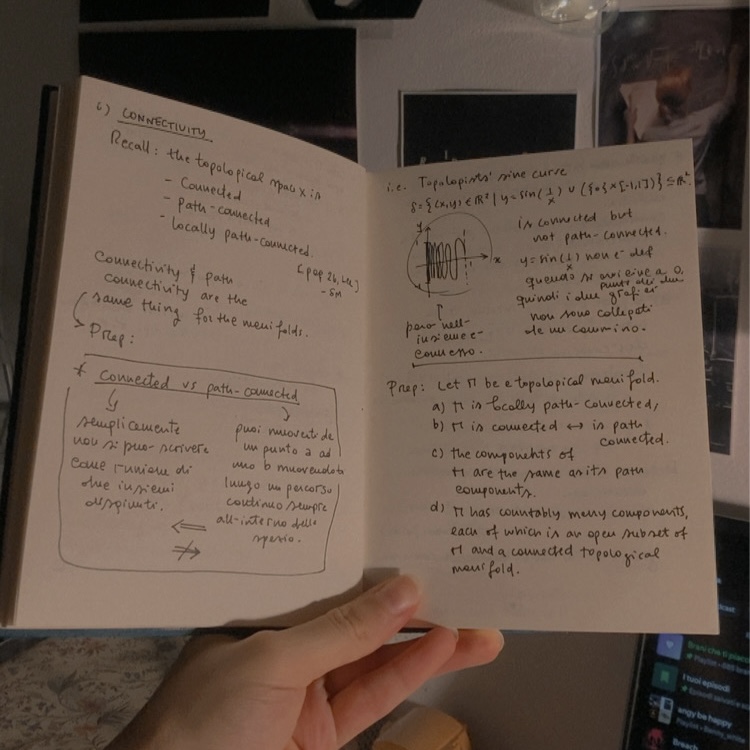 6) CONNECTIVITY
Recall: the topological space x is
- Connected
- path-connected
- locally path-connected.
Connectivity & path
connectivity are the
same thing for the manifolds.
[pag 26, Lee]
- SM
Prep:
* Connected vs path-connected
semplicemente
non si può scrivere
come l'unione di
due insiemi
disgiunti.
puoi muoverti da
un punto a ad
uno b muovendoti
lungo un percorso
continuo sempre
all'interno dello
spazio.
⇐
⇏
i.e. Topologists' sine curve
S = {(x,y) ∈ ℝ² | y = sin(1/x) ∪ ({0} × [-1,1])} ⊆ ℝ².
y
x
is connected but
not path-connected.
y = sin(1/x) non è def
quando si avvicina a 0,
quindi i due grafici
non sono collegati
da un cammino.
però nell'
insieme è
connesso.
Prep: Let M be a topological manifold.
a) M is locally path-connected,
b) M is connected ↔ is path
connected.
c) the components of
M are the same as its path
components.
d) M has countably many components,
each of which is an open subset of
M and a connected topological
manifold.
Brani che ti piac
Playlist
I tuoi episodi
angy be happy
Playlist